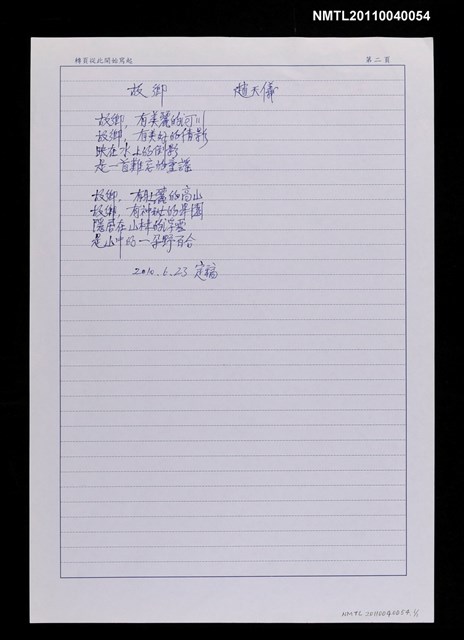 NMTL20110040054
轉頁從此開始寫起
第二頁
故鄉 趙天儀
故鄉，有美麗的河川
故鄉，有美好的倩影
映在水上的倒影
是一首難忘的童謠
故鄉，有壯麗的高山
故鄉，有神祕的果園
隱居在山林的浮雲
是山中的一朵野百合
2010.6.23 定稿
NMTL20110040054.1/1